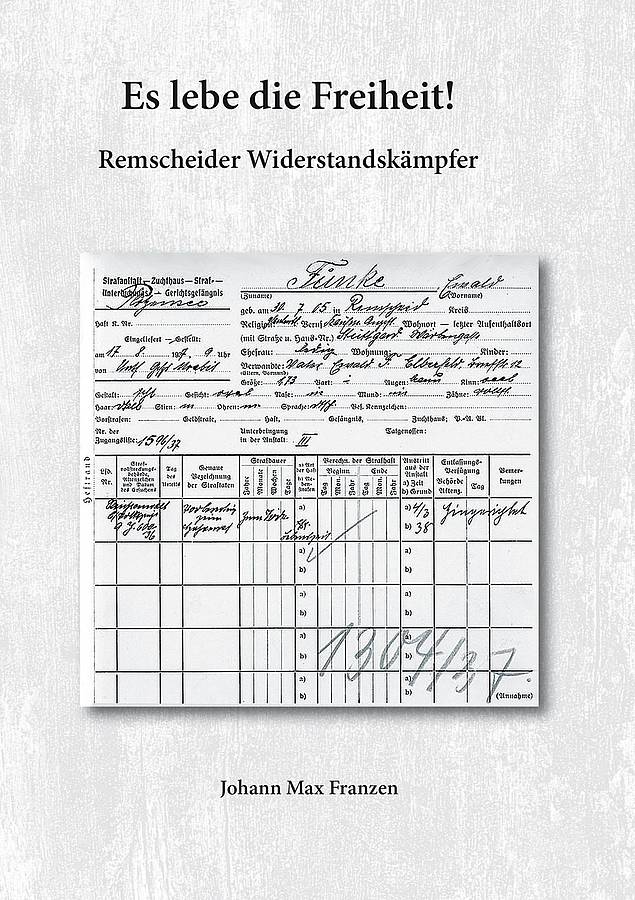 Es lebe die Freiheit!
Remscheider Widerstandskämpfer
Strafanstalt — Zuchthaus — Straf- —
Untersuchungs — Gerichtsgefängnis
Plötzensee
Haft B. Nr.
Eingeliefert — Gestellt:
am 17. 8. 1937, 9 Uhr
von
Funke Ewald
(Zuname) (Vorname)
geb. am 30. 7. 05 in Remscheid Kreis
Religion Beruf Wohnort — letzter Aufenthaltsort
(mit Straße u. Haus-Nr.) Stuttgart
Ehefrau: ledig Wohnung: Kinder:
Verwandte: Vater Ewald F. Elberfeld
(Eltern, Vormund)
Größe: 173 Bart: - Augen: Kinn: oval
Gestalt: Gesicht: oval Nase: Mund: Zähne:
Haar: Stirn: Ohren: Sprache: Bes. Kennzeichen:
Vorstrafen: Geldstrafe, Haft, Gefängnis, Zuchthaus;
Nr. der
Zugangsliste: 1596/37
Unterbringung
in der Anstalt: III
Tatgenossen:
Heftrand
Lfd. Nr.
Straf-
vollstreckungs-
behörde,
Aktenzeichen
und Datum
des Ersuchens
Tag
des
Urteils
Genaue
Bezeichnung
der Straftaten
Strafdauer
Jahre Monate Wochen Tage
a) Art der Haft
Berechn. der Strafhaft
Beginn Ende
Tag Mon. Jahr Tag Mon. Jahr
Austritt
aus der
Anstalt
a) Zeit
b) Grund
Entlassungs-
Verfügung
Behörde
Aktenz.
Tag
Bemer-
kungen
zum Tode
a) 4/3
b) 38
Hingerichtet
a)
b)
a)
b)
a)
b)
a)
b)
1304/37.
(Annahme)
Johann Max Franzen